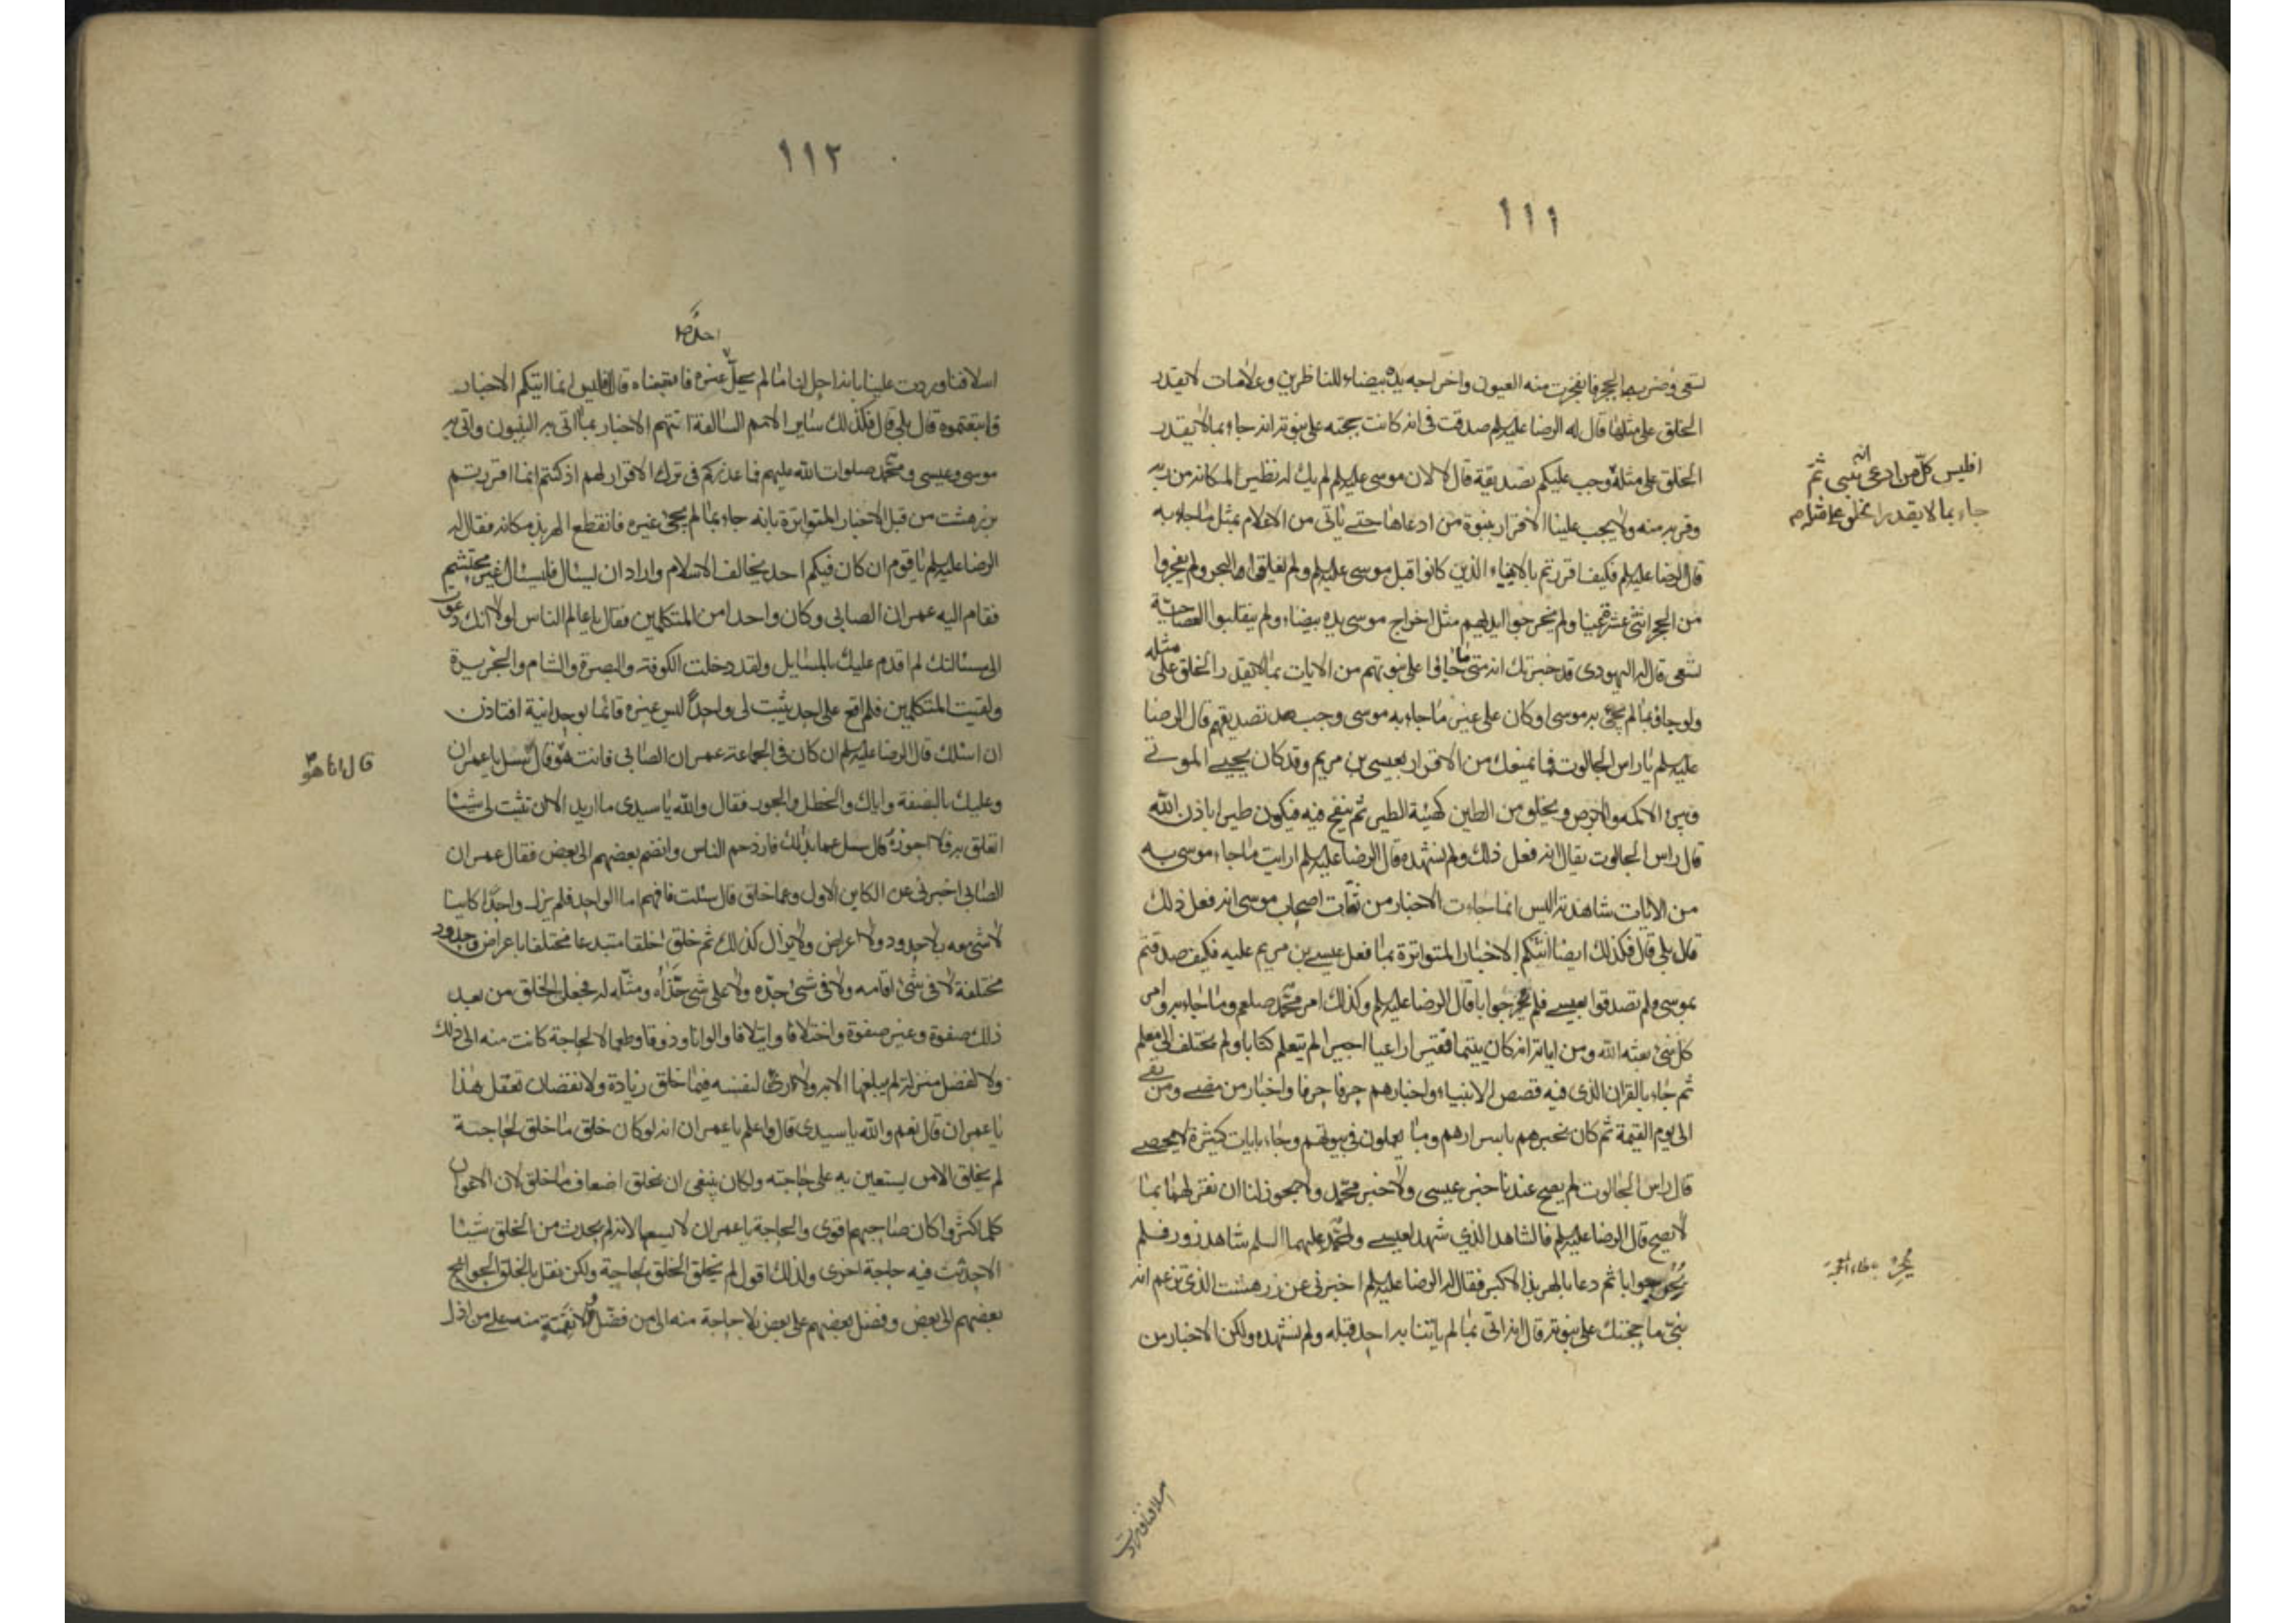 ١١١
تسعى وضربه الحجر فانفجرت منه العيون واخراجه يده بيضاء للناظرين وعلامات لا يقدر
الخلق على مثلها قال له الرضا عليه السلم صدقت في انه كانت حجته على نبوته انه جاء بما لا يقدر
الخلق على مثله وجب عليكم تصديقه قال لا لان موسى عليه السلم لم يك له نظير لمكانه من ربه
وقربه منه ولا يجب علينا الاقرار بنبوة من ادعاها حتى ياتى من الاعلام بمثل ما جاء به
قال الرضا عليه السلم فكيف اقررتم بالانبياء الذين كانوا قبل موسى عليه السلم ولم يفلقوا البحر ولم يفجروا
من الحجر اثنتى عشرة عينا ولم يخرجوا ايديهم مثل اخراج موسى يده بيضاء ولم يقلبوا العصا حية
تسعى قال له اليهودى قد خبرتك انه متى ما جاؤا على نبوتهم من الايات بما لا يقدر الخلق على مثله
ولو جاؤا بما لم يجئ به موسى او كان على غير ما جاء به موسى وجب تصديقهم قال الرضا
عليه السلم يا راس الجالوت فما يمنعك من الاقرار بعيسى بن مريم وقد كان يحيى الموتى
ويبرئ الاكمه والابرص ويخلق من الطين كهيئة الطير ثم ينفخ فيه فيكون طيرا باذن الله
قال راس الجالوت يقال انه فعل ذلك ولم نشهده قال الرضا عليه السلم ارايت ما جاء موسى به
من الايات شاهدته اليس انما جاءت الاخبار من ثقات اصحاب موسى انه فعل ذلك
قال بلى قال فكذلك ايضا اتتكم الاخبار المتواترة بما فعل عيسى بن مريم عليه فكيف صدقتم
بموسى ولم تصدقوا بعيسى فلم يحر جوابا قال الرضا عليه السلم وكذلك امر محمد صلعم وما جاء به وامر
كل نبي بعثه الله ومن اياته انه كان يتيما فقيرا راعيا اجيرا لم يتعلم كتابا ولم يختلف الى معلم
ثم جاء بالقران الذى فيه قصص الانبياء واخبارهم حرفا حرفا واخبار من مضى ومن بقى
الى يوم القيمة ثم كان يخبرهم باسرارهم وما يعملون في بيوتهم وجاء بايات كثيرة لا تحصى
قال راس الجالوت لم يصح عندنا خبر عيسى ولا خبر محمد ولا يجوز لنا ان نقر لهما بما
لا يصح قال الرضا عليه السلم فالشاهد الذي شهد لعيسى ولمحمد عليهما السلم شاهد زور فلم
يحر جوابا ثم دعا بالهربذ الاكبر فقال له الرضا عليه السلم اخبرنى عن زرهشت الذى تزعم انه
نبى ما حجتك على نبوته قال انه اتى بما لم ياتنا به احد قبله ولم نشهده ولكن الاخبار من
افليس كل من ادعى انه نبى ثم
جاء بما لا يقدر الخلق على مثله
اسلافنا وردت
١١٢
اسلافنا وردت علينا بانه احل لنا ما لم يحل غيره فاتبعناه قال افليس انما اتتكم الاخبار
فاتبعتموه قال بلى قال فكذلك ساير الامم السالفة اتتهم الاخبار بما اتى به النبيون واتى به
موسى وعيسى ومحمد صلوات الله عليهم فما عذركم فى ترك الاقرار لهم اذ كنتم انما اقررتم
بزرهشت من قبل الاخبار المتواترة بانه جاء بما لم يجئ غيره فانقطع الهربذ مكانه فقال له
الرضا عليه السلم يا قوم ان كان فيكم احد يخالف الاسلام واراد ان يسئال فليسئال غير محتشم
فقام اليه عمران الصابى وكان واحدا من المتكلمين فقال يا عالم الناس لولا انك دعوت
الى مسئالتك لم اقدم عليك بالمسايل ولقد دخلت الكوفة والبصرة والشام والجزيرة
ولقيت المتكلمين فلم اقع على احد يثبت لى واحدا ليس غيره قائما بوحدانية افتاذن
ان اسئلك قال الرضا عليه السلم ان كان فى الجماعة عمران الصابى فانت هو قال سل يا عمران
وعليك بالنصفة واياك والخطل والجور فقال والله يا سيدى ما اريد الا ان تثبت لى شيئا
اتعلق به فلا اجوزه قال سل عما بدا لك فازدحم الناس وانضم بعضهم الى بعض فقال عمران
الصابى اخبرنى عن الكاين الاول وعما خلق قال سئلت فافهم اما الواحد فلم يزل واحدا كاينا
لا شى معه بلا حدود ولا اعراض ولا يزال كذلك ثم خلق خلقا مبتدعا مختلفا باعراض وحدود
مختلفة لا فى شئ اقامه ولا فى شئ حده ولا على شى حذاه ومثله له فجعل الخلق من بعد
ذلك صفوة وغير صفوة واختلافا وايتلافا والوانا وذوقا وطعما لا لحاجة كانت منه الى ذلك
ولا لفضل منزلة لم يبلغها الا به ولا راى لنفسه فيما خلق زيادة ولا نقصان تعقل هذا
يا عمران قال نعم والله يا سيدى قال واعلم يا عمران انه لو كان خلق ما خلق لحاجة
لم يخلق الا من يستعين به على حاجته ولكان ينبغى ان يخلق اضعاف ما خلق لان الاعوان
كلما كثروا كان صاحبهم اقوى والحاجة يا عمران لا يسعها لانه لم يحدث من الخلق شيئا
الا حدثت فيه حاجة اخرى ولذلك اقول لم يخلق الخلق لحاجة ولكن نقل بالخلق الحوائج
بعضهم الى بعض وفضل بعضهم على بعض بلا حاجة منه الى من فضل ولا نقمة منه على من اذل
قال انا هو